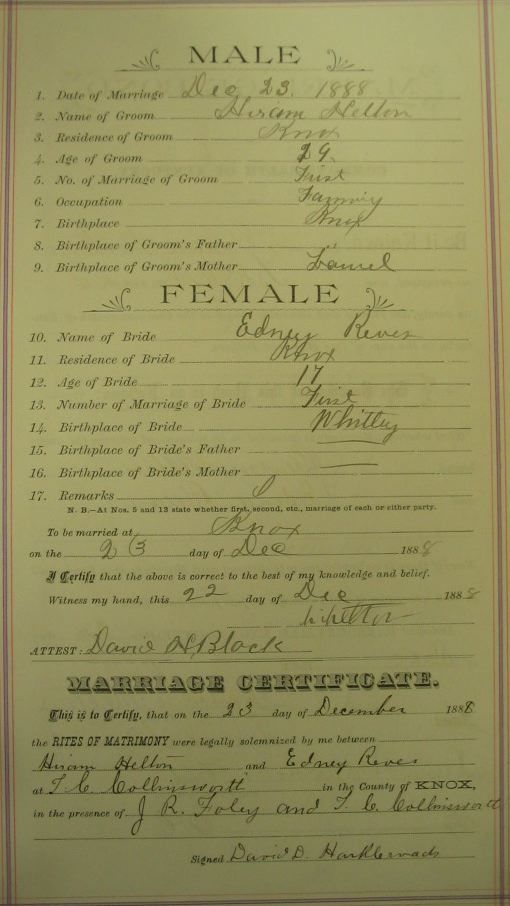 MALE
1. Date of Marriage Dec 23. 1888.
2. Name of Groom Hiram Helton
3. Residence of Groom Knox
4. Age of Groom 29.
5. No. of Marriage of Groom First
6. Occupation
7. Birthplace Knox
8. Birthplace of Groom's Father "
9. Birthplace of Groom's Mother Laurel
FEMALE
10. Name of Bride Edney Reves
11. Residence of Bride Knox
12. Age of Bride 17
13. Number of Marriage of Bride First
14. Birthplace of Bride Whitley
15. Birthplace of Bride's Father —
16. Birthplace of Bride's Mother —
17. Remarks
N. B.—At Nos. 5 and 13 state whether first, second, etc., marriage of each or either party.
To be married at Knox
on the 23 day of Dec 1888
I Certify that the above is correct to the best of my knowledge and belief.
Witness my hand, this 22 day of Dec 1888
ATTEST: David H Black
MARRIAGE CERTIFICATE.
This is to Certify, that on the 23 day of December 1888
the RITES OF MATRIMONY were legally solemnized by me between
Hiram Helton and Edney Reves
at T. C. Collinsworth in the County of KNOX,
in the presence of J R. Foley and T. C. Collinsworth
Signed David D.